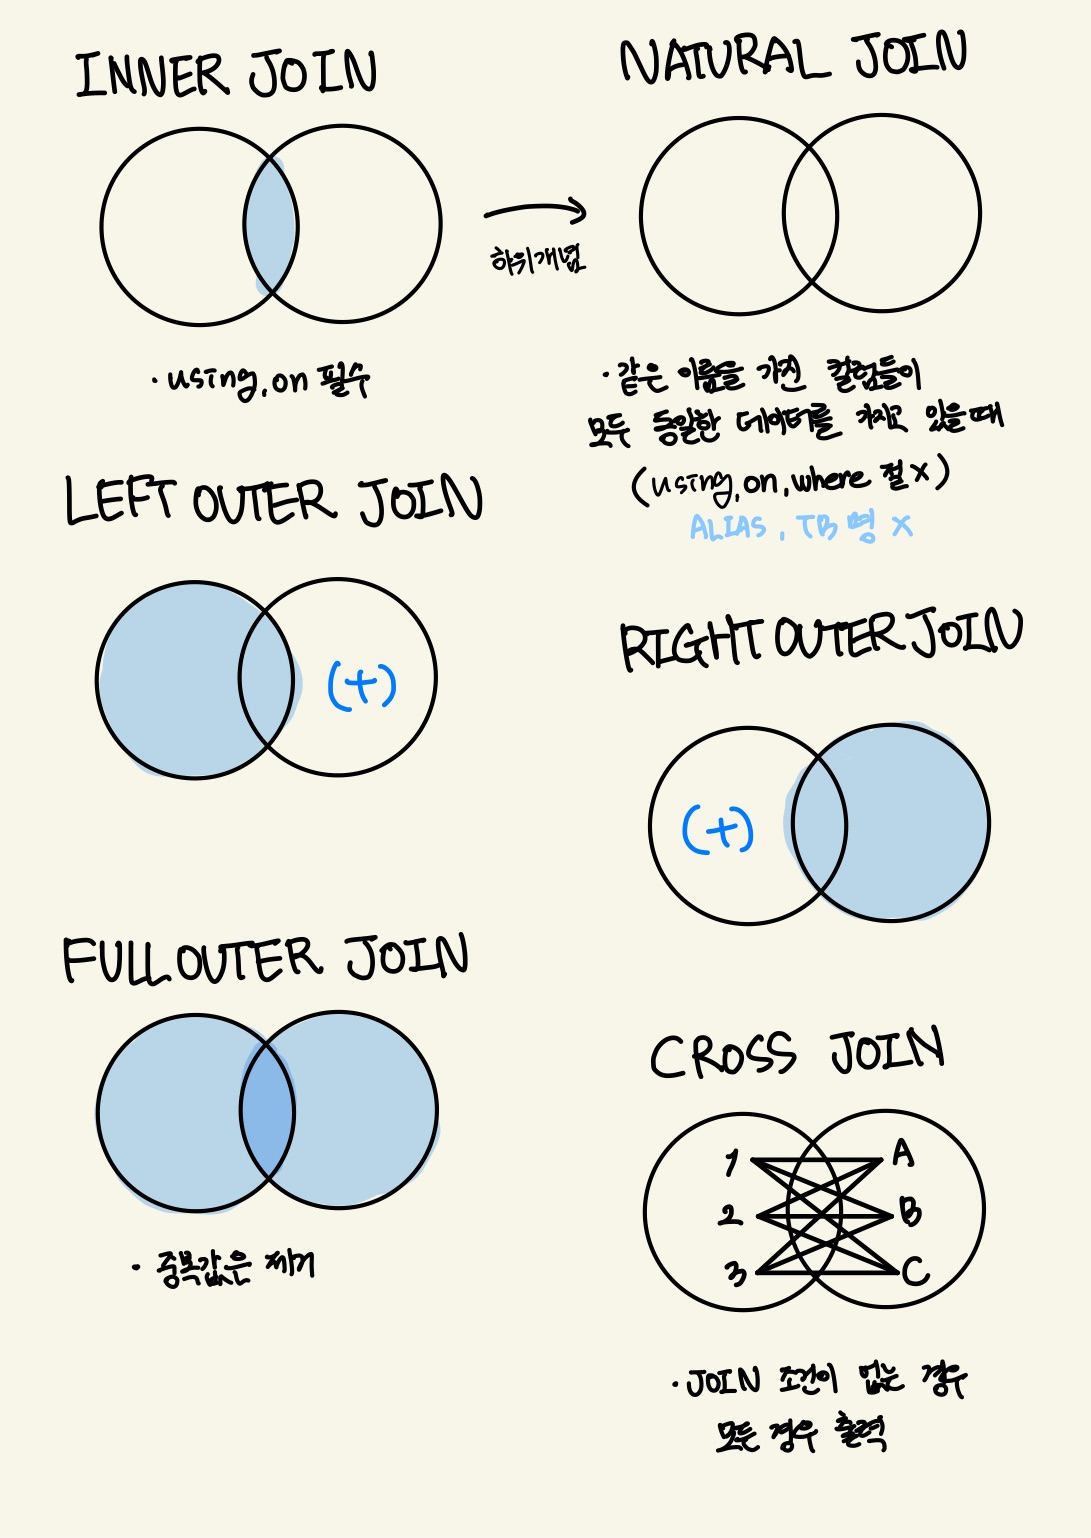 INNER JOIN
NATURAL JOIN
하위개념
· using, on 필수
· 같은 이름을 가진 컬럼들이
모두 동일한 데이터를 가지고 있을때
(using, on, where 절 X)
ALIAS, TB명 X
LEFT OUTER JOIN
(+)
RIGHT OUTER JOIN
(+)
FULL OUTER JOIN
· 중복값은 제거
CROSS JOIN
1 A
2 B
3 C
· JOIN 조건이 없는 경우
모든 경우 출력